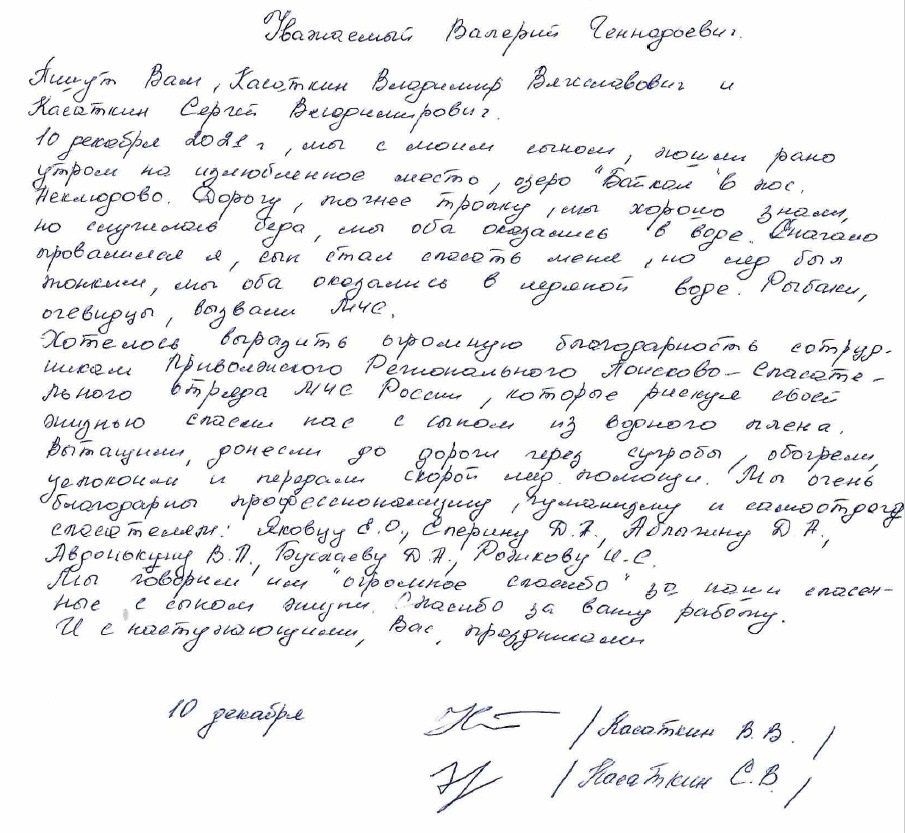 Уважаемый Валерий Геннадьевич.
Пишут Вам, Касаткин Владимир Вячеславович и
Касаткин Сергей Владимирович.
10 декабря 2021 г, мы с моим сыном, пошли рано
утром на излюбленное место, озеро "Байкал" в пос.
Неклюдово. Дорогу, точнее тропку, мы хорошо знали,
но случилась беда, мы оба оказались в воде. Сначало
провалился я, сын стал спасать меня, но лёд был
тонким, мы оба оказались в ледяной воде. Рыбаки,
очевидцы, вызвали МЧС.
Хотелось выразить огромную благодарность сотруд-
никам Приволжского Регионального Поисково-Спасате-
льного отряда МЧС России, которые рискуя своей
жизнью спасли нас с сыном из водного плена.
Вытащили, донесли до дороги через сугробы, обогрели,
успокоили и передали скорой мед. помощи. Мы очень
благодарны профессионализму, гуманизму и
спасателям: Яковцу Е.О., Еперину Д.А., Аблязину Д.А.,
Авдонькину В.П., Буслаеву Д.А., Родикову И.С.
Мы говорим им "огромное спасибо" за наши спасен-
ные с сыном жизни. Спасибо за вашу работу.
И с наступающими, Вас, праздниками
10 декабря
/ Касаткин В.В. /
/ Касаткин С.В. /